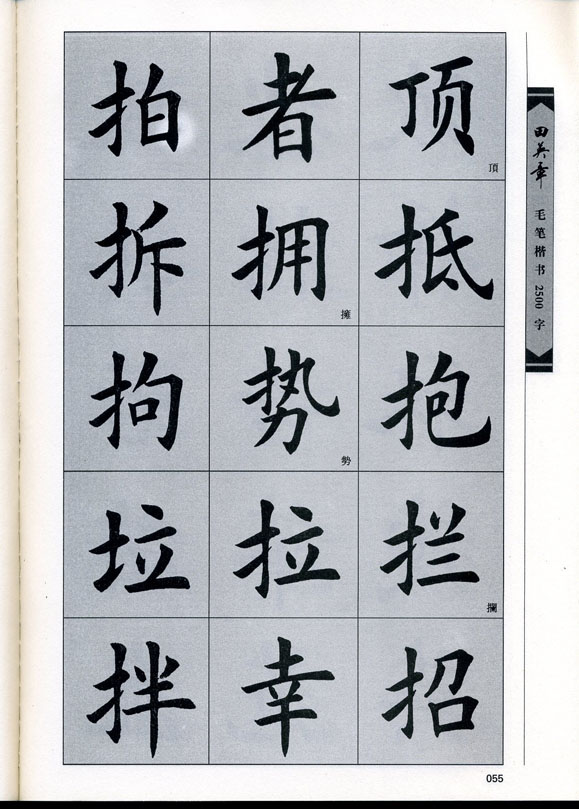 拍 者 顶
頂
拆 拥 抵
擁
拘 势 抱
勢
垃 拉 拦
攔
拌 幸 招
田英章 毛笔楷书2500字
055